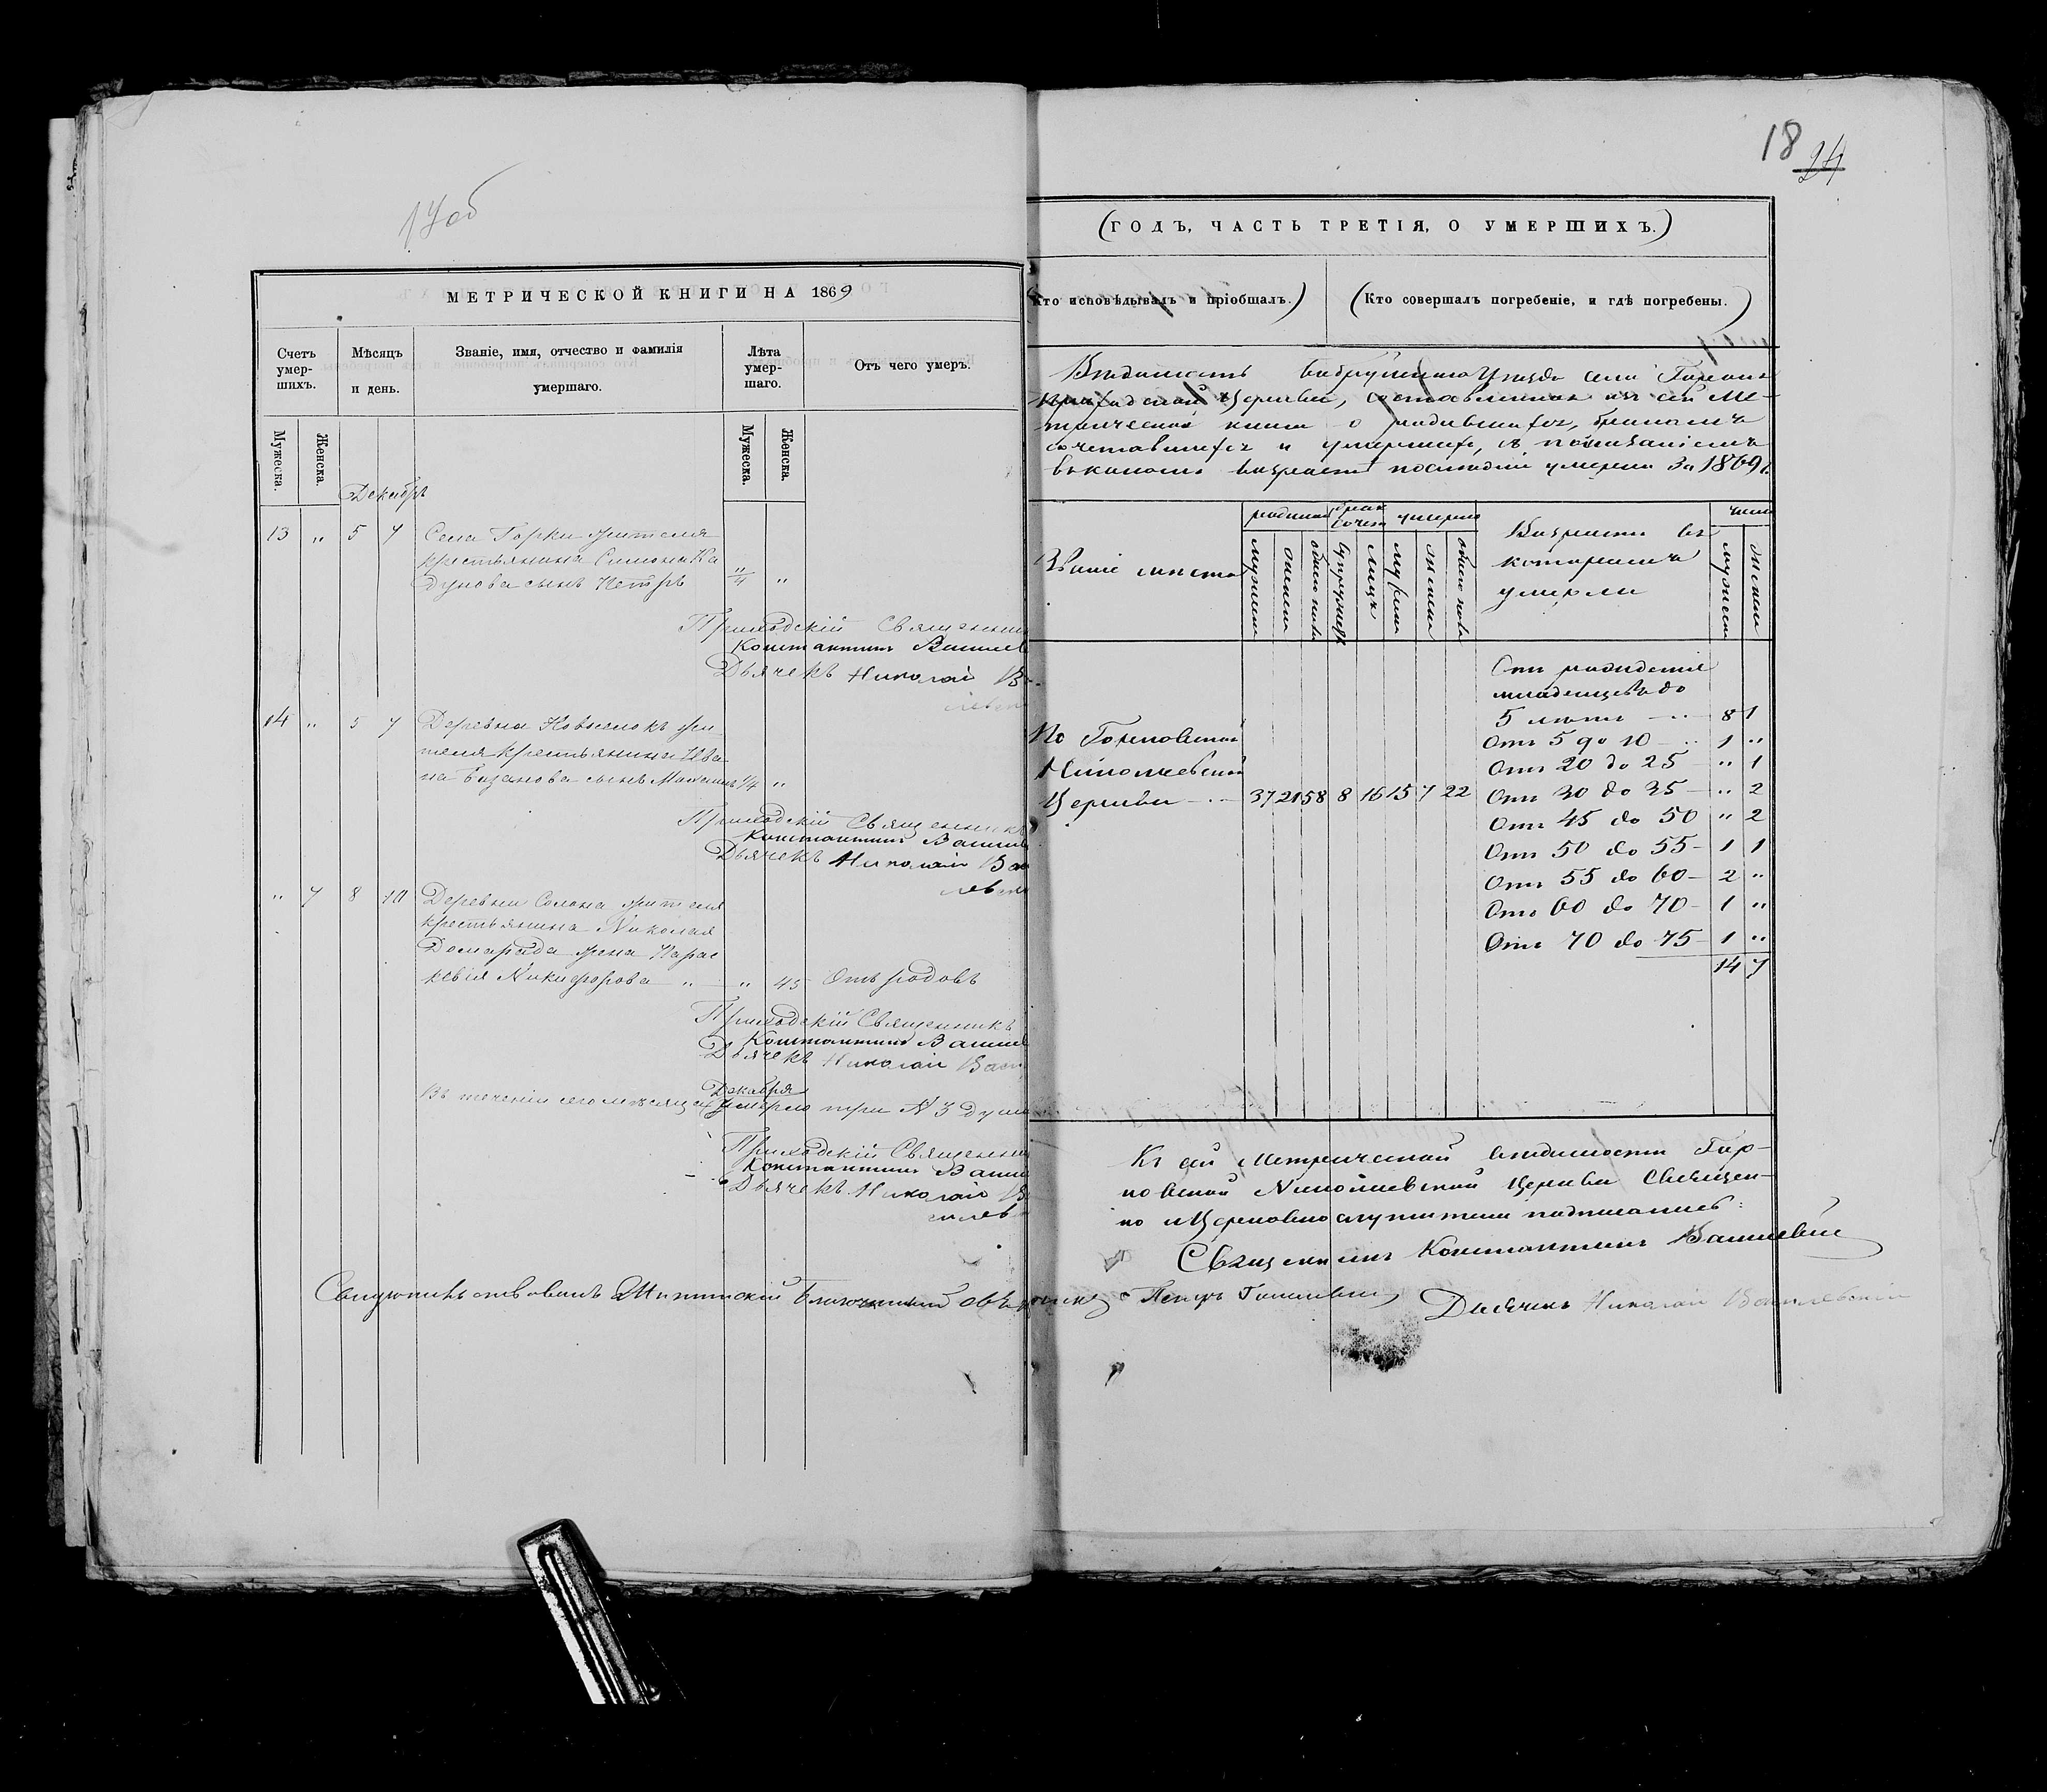 17об
МЕТРИЧЕСКОЙ КНИГИ НА 1869
Счетъ умер-шихъ.
Мѣсяцъ и день.
Званіе, имя, отчество и фамилія умершаго.
Лѣта умер-шаго.
Отъ чего умеръ.
Мужеска.
Женска.
Мужеска.
Женска.
Декабрь
13 " 5 7 Села Горки жителя
крестьянина Симона Ка
дунова сынъ Петръ "
Приходскій Священни
Константинъ Васил
Дьячекъ Николай В
14 " 5 7 Деревни Новоселокъ жи
теля крестьянина Ива
на сынъ 1/4 "
Приходскій Священникъ
Константинъ Васил
Дьячекъ Николай Ва
левск
" 7 8 10 Деревни Солона жителя
крестьянина Николая
Домарада жена Парас
кевія Никифорова " " 45 Отъ родовъ
Приходскій Священникъ
Константинъ Васил
Дьячекъ Николай Вас
Декабря
Въ теченіи сего мѣсяца умерло три № 3 душ
Приходскій Священни
Константинъ Васи
Дьячекъ Николай В
силев
Благочинный
18 24
(ГОДЪ, ЧАСТЬ ТРЕТІЯ, О УМЕРШИХЪ.)
(Кто исповѣдывалъ и пріобщалъ.)
(Кто совершалъ погребеніе, и гдѣ погребены.)
Вѣдомость Бобруйскаго Уѣзда села
Приходской Церкви, составленная изъ сей Ме-
трической книги о родившихся, бракомъ
сочетавшихся и умершихъ, съ показаніемъ
въ какомъ возрастѣ послѣдніе умерли за 1869 г.
Званіе мѣста
родилось
брак сочет
умерло
Возрастъ въ
которомъ
умерли
число
мужеск
женск
обоего пола
супружествъ
лицъ
мужеска
женска
обоего пола
мужеск
женск
Отъ рожденія
младенцевъ до
5 лѣтъ 8 1
Отъ 5 до 10 1 "
Отъ 20 до 25 " 1
Отъ 30 до 35 " 2
Отъ 45 до 50 " 2
Отъ 50 до 55 1 1
Отъ 55 до 60 2 "
Отъ 60 до 70 1 "
Отъ 70 до 75 1 "
14 7
По Горковской
Николаевской
Церкви 37 21 58 8 16 15 7 22
Къ сей Метрической вѣдомости Гор-
ковской Николаевской Церкви Священ-
но и Церковнослужители подписались:
Священникъ Константинъ Василевскій
Дьячекъ Николай Василевскій